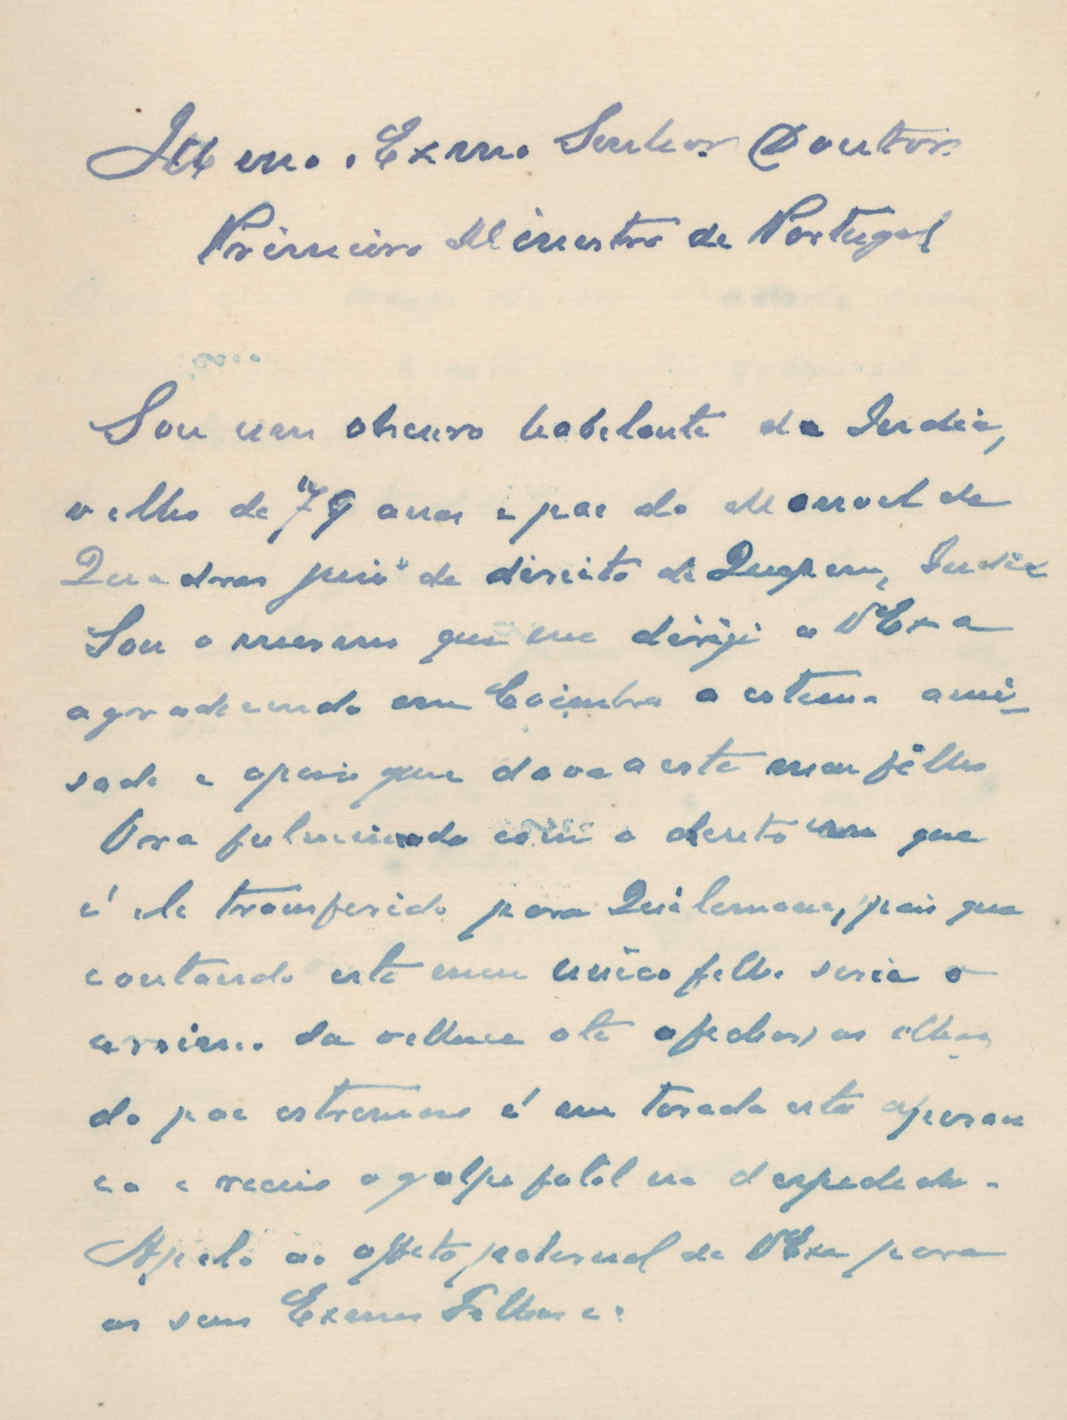 Illmo. Exmo. Senhor Doutor
Primeiro Ministro de Portugal
Sou um obscuro habitante da India,
velho de 79 anos e pae do Manoel de
Quadros juis de direito de Quepem, India
Sou o mesmo que me dirigi a VExa
agradecendo em Coimbra a estima ami-
sade e apoio que dava a este meu filho
Ora fulminado com o decreto em que
é ele transferido para Quilemane, pois que
contando este meu unico filho seria o
arrimo da velhice até a fechar os olhos
do pae estremoso é em torada esta esperan
ca e receio o golpe fatal na despedida.
Apelo ao affeto paternal de VExa para
os seus Exmos Filhos e